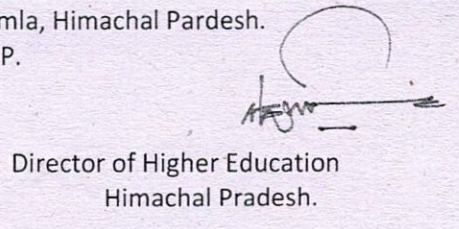 mla, Himachal Pardesh.
P.
Director of Higher Education
Himachal Pradesh.